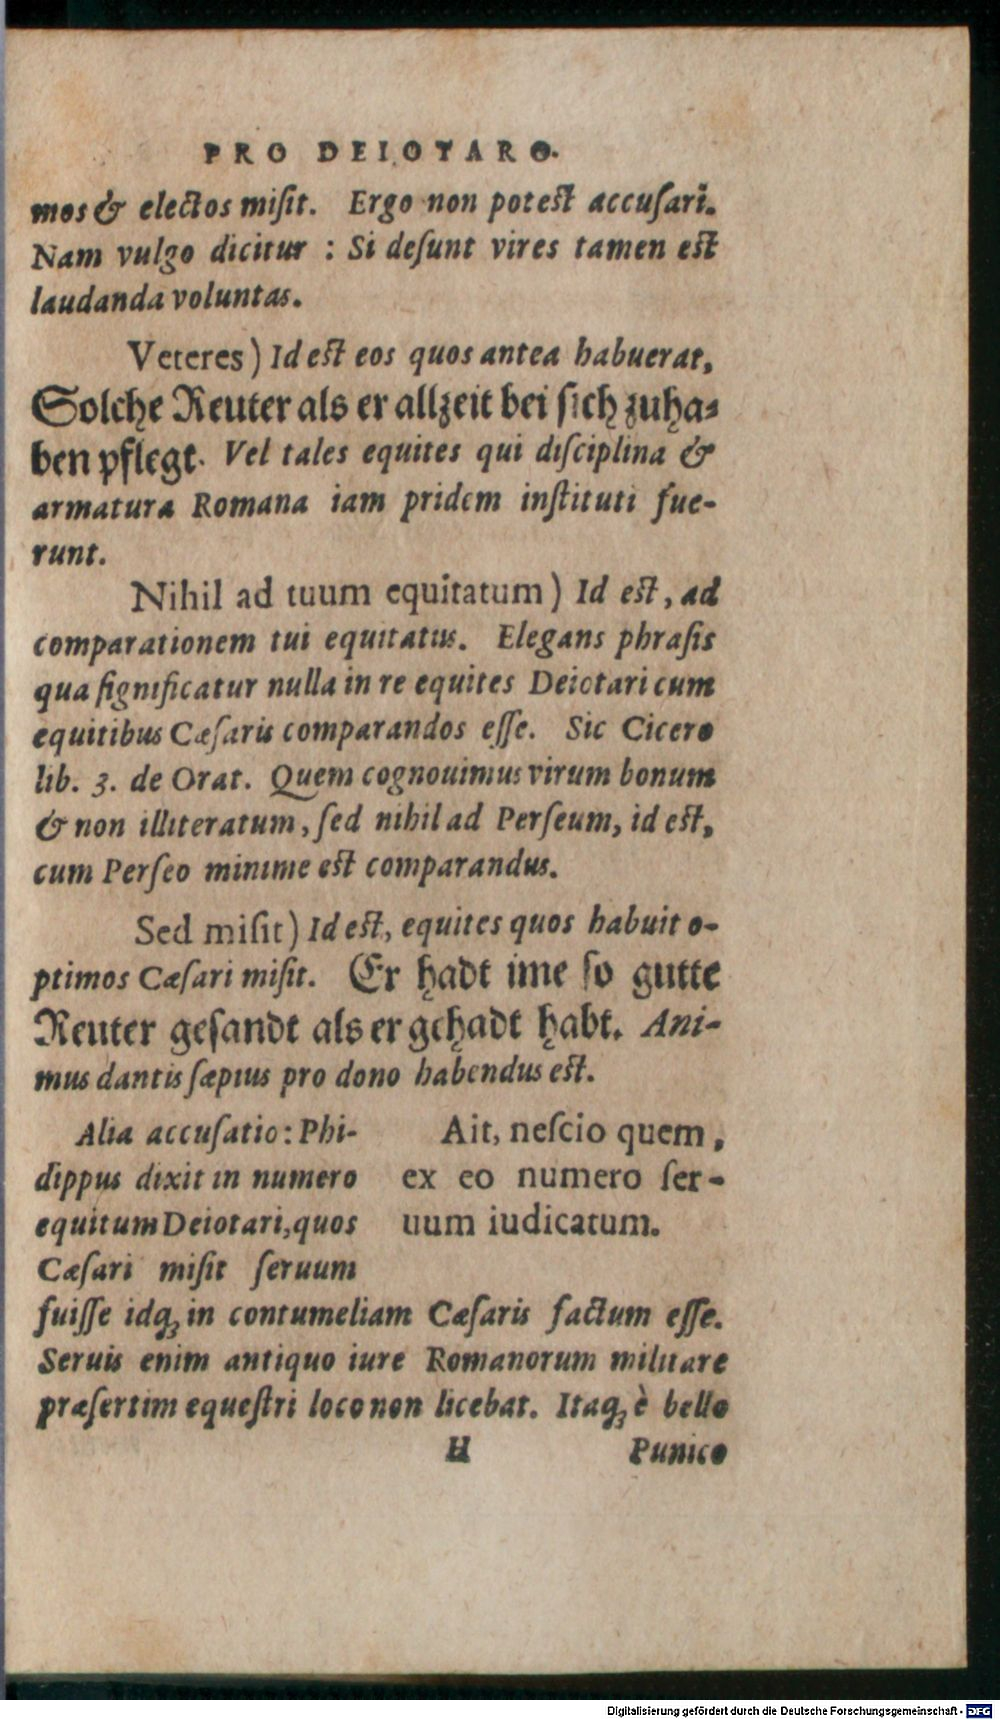 PRO DEIOTARO.
mos & electos misit. Ergo non potest accusari.
Nam vulgo dicitur : Si desunt vires tamen est
laudanda voluntas.
Veteres) Id est eos quos antea habuerat,
Solche Reuter als er allzeit bei sich zuha-
ben pflegt. Vel tales equites qui disciplina &
armatura Romana iam pridem instituti fue-
runt.
Nihil ad tuum equitatum) Id est, ad
comparationem tui equitatus. Elegans phrasis
qua significatur nulla in re equites Deiotari cum
equitibus Cæsaris comparandos esse. Sic Cicero
lib. 3. de Orat. Quem cognouimus virum bonum
& non illiteratum, sed nihil ad Perseum, id est,
cum Perseo minime est comparandus.
Sed misit) Id est, equites quos habuit o-
ptimos Cæsari misit. Er hadt ime so gutte
Reuter gesandt als er gehadt habt. Ani-
mus dantis sæpius pro dono habendus est.
Alia accusatio: Phi-
dippus dixit in numero
equitum Deiotari, quos
Cæsari misit seruum
Ait, nescio quem,
ex eo numero ser-
uum iudicatum.
fuisse idq; in contumeliam Cæsaris factum esse.
Seruis enim antiquo iure Romanorum militare
præsertim equestri loco non licebat. Itaq; è bello
H Punico
Digitalisierung gefördert durch die Deutsche Forschungsgemeinschaft - DFG